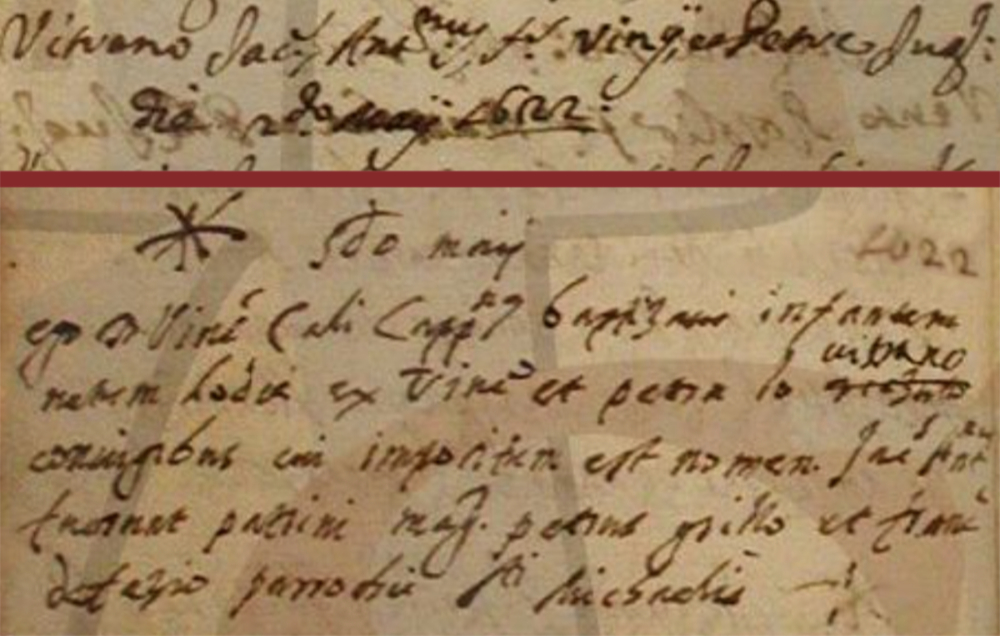 Vitrano Jac. Antnus f. Vincẽ et Petre Jug.:
Die 2do maij 1622:
Sdo maij 1622
ego D Vincẽ Cali Cappnus baptizavi infantem
natum hodie ex Vincõ et petra lo vitrano
coniugibus cui impositum est nomen. Jacs Antnus
fuerunt patrini mag. petrus grillo et franca
de fazio parrochie sti Michaelis